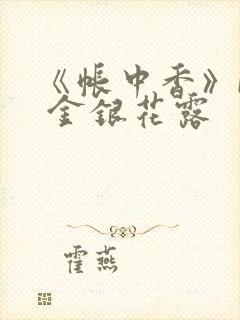 《帐中香》
金银花露
霍燕